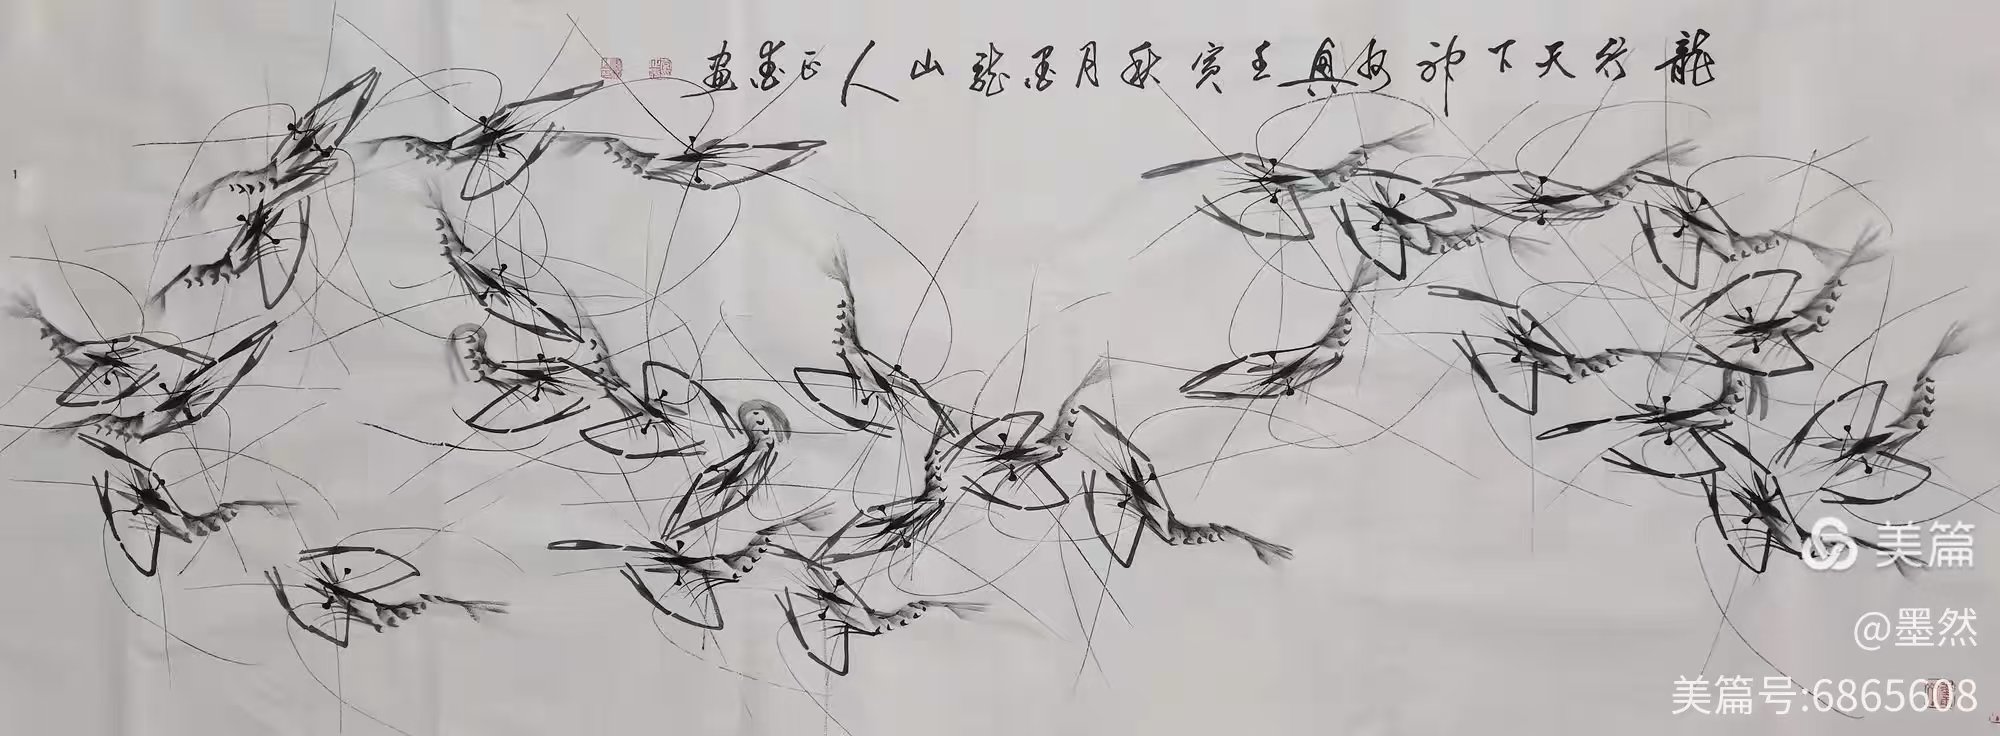 龍行天下神如真壬寅秋月墨龍山人正春画
美篇
@墨然
美篇号:6865608